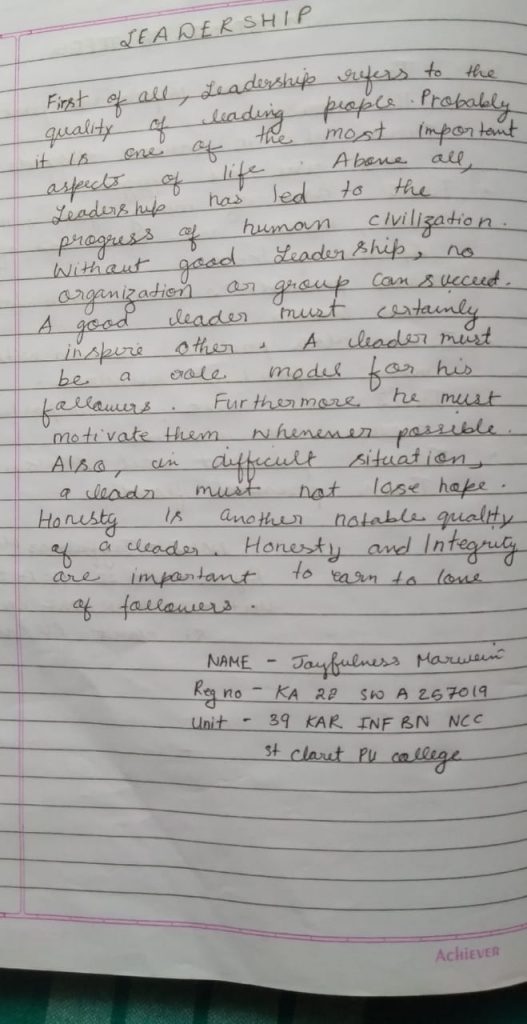 LEADERSHIP
First of all, Leadership refers to the
quality of leading people. Probably
it is one of the most important
aspects of life. Above all,
Leadership has led to the
progress of human civilization.
Without good Leadership, no
organization or group can succeed.
A good leader must certainly
inspire other. A leader must
be a role model for his
followers. Furthermore he must
motivate them whenever possible.
Also, in difficult situation,
a leadr must not lose hope.
Honisty is another notable quality
of a leader. Honesty and Integrity
are important to earn to love
of followers.
NAME - Joyfulness Marwein
Reg no - KA 22 SW A 257019
Unit - 39 KAR INF BN NCC
St Claret PU college
Achiever